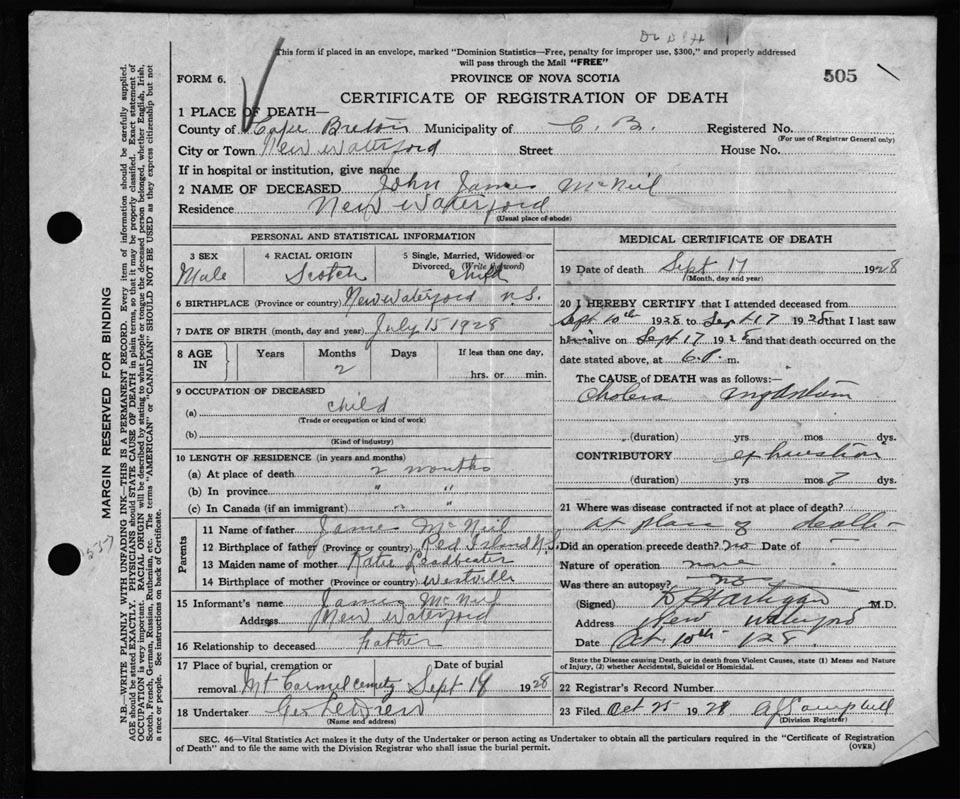 This form if placed in an envelope, marked "Dominion Statistics—Free, penalty for improper use, $300," and properly addressed
will pass through the Mail "FREE"
FORM 6.
PROVINCE OF NOVA SCOTIA
505
CERTIFICATE OF REGISTRATION OF DEATH
1 PLACE OF DEATH—
County of Cape Breton Municipality of C. B. Registered No.
(For use of Registrar General only)
City or Town New Waterford Street House No.
If in hospital or institution, give name
2 NAME OF DECEASED John James McNeil
Residence New Waterford
(Usual place of abode)
PERSONAL AND STATISTICAL INFORMATION
3 SEX 4 RACIAL ORIGIN 5 Single, Married, Widowed or
Divorced. (Write the word)
Male Scotch child
6 BIRTHPLACE (Province or country) New Waterford N.S.
7 DATE OF BIRTH (month, day and year) July 15 1928
8 AGE IN Years Months Days If less than one day,
2 hrs. or min.
9 OCCUPATION OF DECEASED
(a) child
(Trade or occupation or kind of work)
(b)
(Kind of industry)
10 LENGTH OF RESIDENCE (in years and months)
(a) At place of death 2 months
(b) In province " "
(c) In Canada (if an immigrant) " "
Parents
11 Name of father James McNeil
12 Birthplace of father (Province or country) Red Island N.S.
13 Maiden name of mother Katie Leadbeater
14 Birthplace of mother (Province or country) Westville
15 Informant's name James McNeil
Address New Waterford
16 Relationship to deceased Father
17 Place of burial, cremation or Date of burial
removal Mt Carmel Cemety Sept 18 1928
18 Undertaker
(Name and address)
MEDICAL CERTIFICATE OF DEATH
19 Date of death Sept 17 1928
(Month, day and year)
20 I HEREBY CERTIFY that I attended deceased from
Sept 10th 1928 to Sept 17 1928 that I last saw
him alive on Sept 17 1928 and that death occurred on the
date stated above, at 6.P. m.
The CAUSE of DEATH was as follows:—
Cholera
(duration) yrs mos dys.
CONTRIBUTORY exhaustion
(duration) yrs mos 7 dys.
21 Where was disease contracted if not at place of death?
at place of death
Did an operation precede death? no Date of —
Nature of operation none
Was there an autopsy? no
(Signed) Hartigan M.D.
Address New Waterford
Date Oct. 10th 128
State the Disease causing Death, or in death from Violent Causes, state (1) Means and Nature
of Injury, (2) whether Accidental, Suicidal or Homicidal.
22 Registrar's Record Number
23 Filed Oct 25 1928 Campbell
(Division Registrar)
SEC. 46—Vital Statistics Act makes it the duty of the Undertaker or person acting as Undertaker to obtain all the particulars required in the "Certificate of Registration
of Death" and to file the same with the Division Registrar who shall issue the burial permit.
(OVER)
MARGIN RESERVED FOR BINDING
N.B.—WRITE PLAINLY WITH UNFADING INK—THIS IS A PERMANENT RECORD. Every item of information should be carefully supplied.
AGE should be stated EXACTLY. PHYSICIANS should STATE CAUSE OF DEATH in plain terms, so that it may be properly classified. Exact statement of
OCCUPATION is very important. RACIAL ORIGIN will be described by stating to what people or tongue the deceased person belonged, whether English, Irish,
Scotch, French, German, Russian, Ruthenian, etc. The terms "AMERICAN" or "CANADIAN" SHOULD NOT BE USED as they express citizenship but not
a race or people. See instructions on back of Certificate.